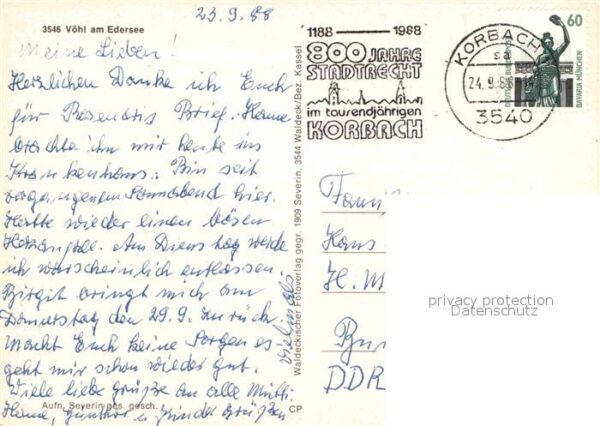 3546 Vöhl am Edersee
23.9.88
Meine Lieben!
Herzlichen Danke ich Euch
für Brief. Hanne
brachte ihn mir heute ins
Krankenhaus. Bin seit
vergangenem Sonnabend hier.
Hatte wieder einen bösen
Am Dienstag werde
ich warscheinlich entlassen.
Birgit bringt mich am
Donnerstag den 29.9. zurück.
Macht Euch keine Sorgen es
geht mir schon wieder gut.
Viele liebe Grüße an alle Mutti.
Hanne, u. Kinder Grüßen
vielmals
Aufn. Severin ges. gesch.
CP
Waldeckischer Fotoverlag gegr. 1909 Severin, 3544 Waldeck/Bez. Kassel
1188 1988
800 JAHRE
STADTRECHT
im tausendjährigen
KORBACH
KORBACH
24.9.88
3540
60
DEUTSCHE BUNDESPOST
BAVARIA MÜNCHEN
Hans
H. M
DDR
privacy protection
Datenschutz